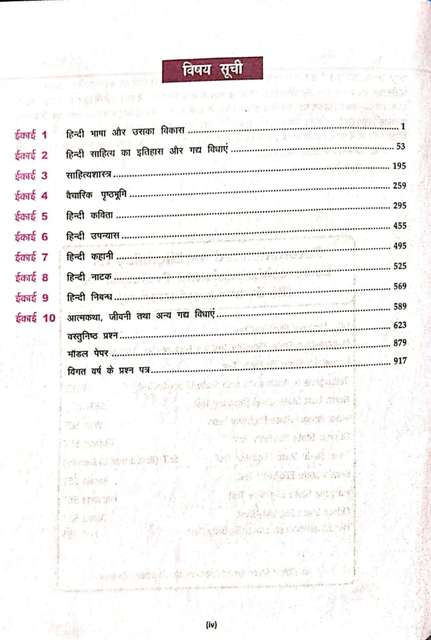 विषय सूची
ईकाई 1 हिन्दी भाषा और उसका विकास 1
ईकाई 2 हिन्दी साहित्य का इतिहास और गद्य विधाएं 53
ईकाई 3 साहित्यशास्त्र 195
ईकाई 4 वैचारिक पृष्ठभूमि 259
ईकाई 5 हिन्दी कविता 295
ईकाई 6 हिन्दी उपन्यास 455
ईकाई 7 हिन्दी कहानी 495
ईकाई 8 हिन्दी नाटक 525
ईकाई 9 हिन्दी निबन्ध 569
ईकाई 10 आत्मकथा, जीवनी तथा अन्य गद्य विधाएं 589
वस्तुनिष्ठ प्रश्न 623
मॉडल पेपर 879
विगत वर्ष के प्रश्न पत्र 917
(iv)